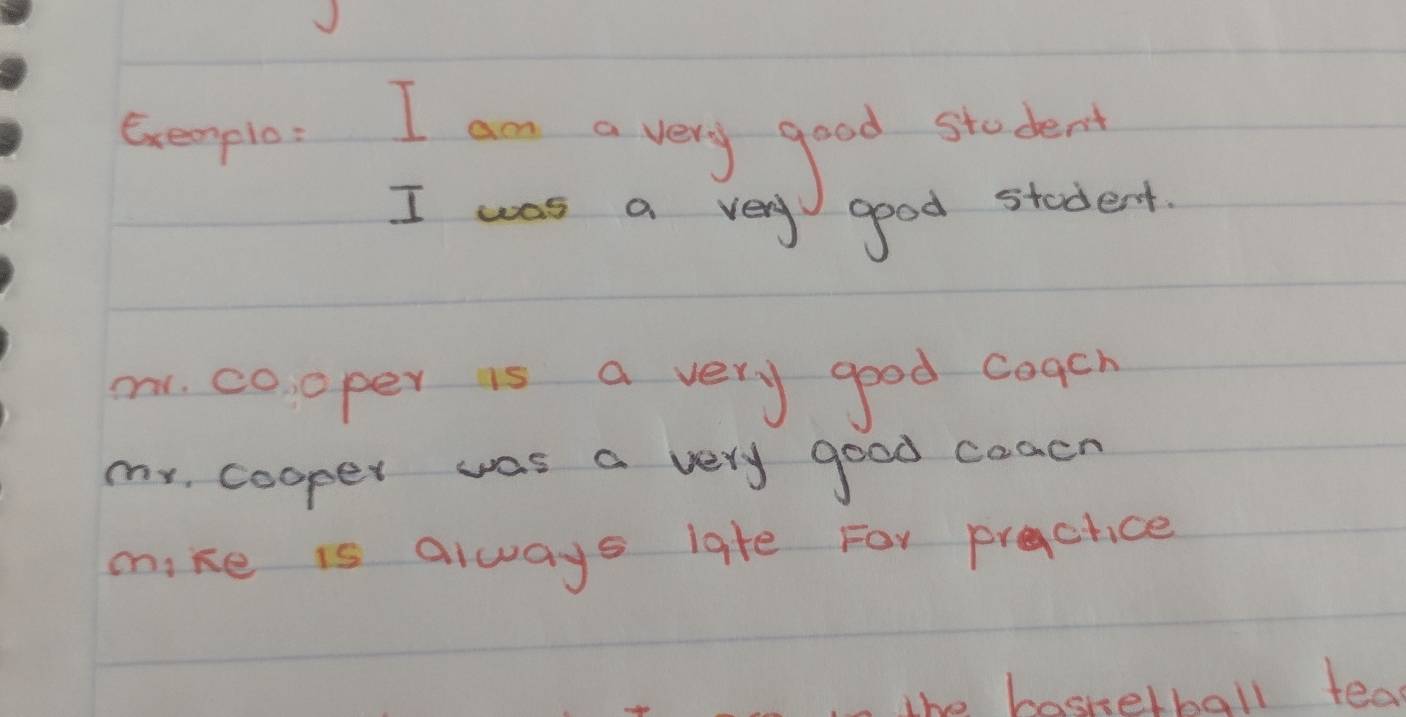 Exemplo: I am a very good student
I was a very good student.
mr. cooper is a very good coach
mr. cooper was a very good coach
mike is always late For practice
the basketball